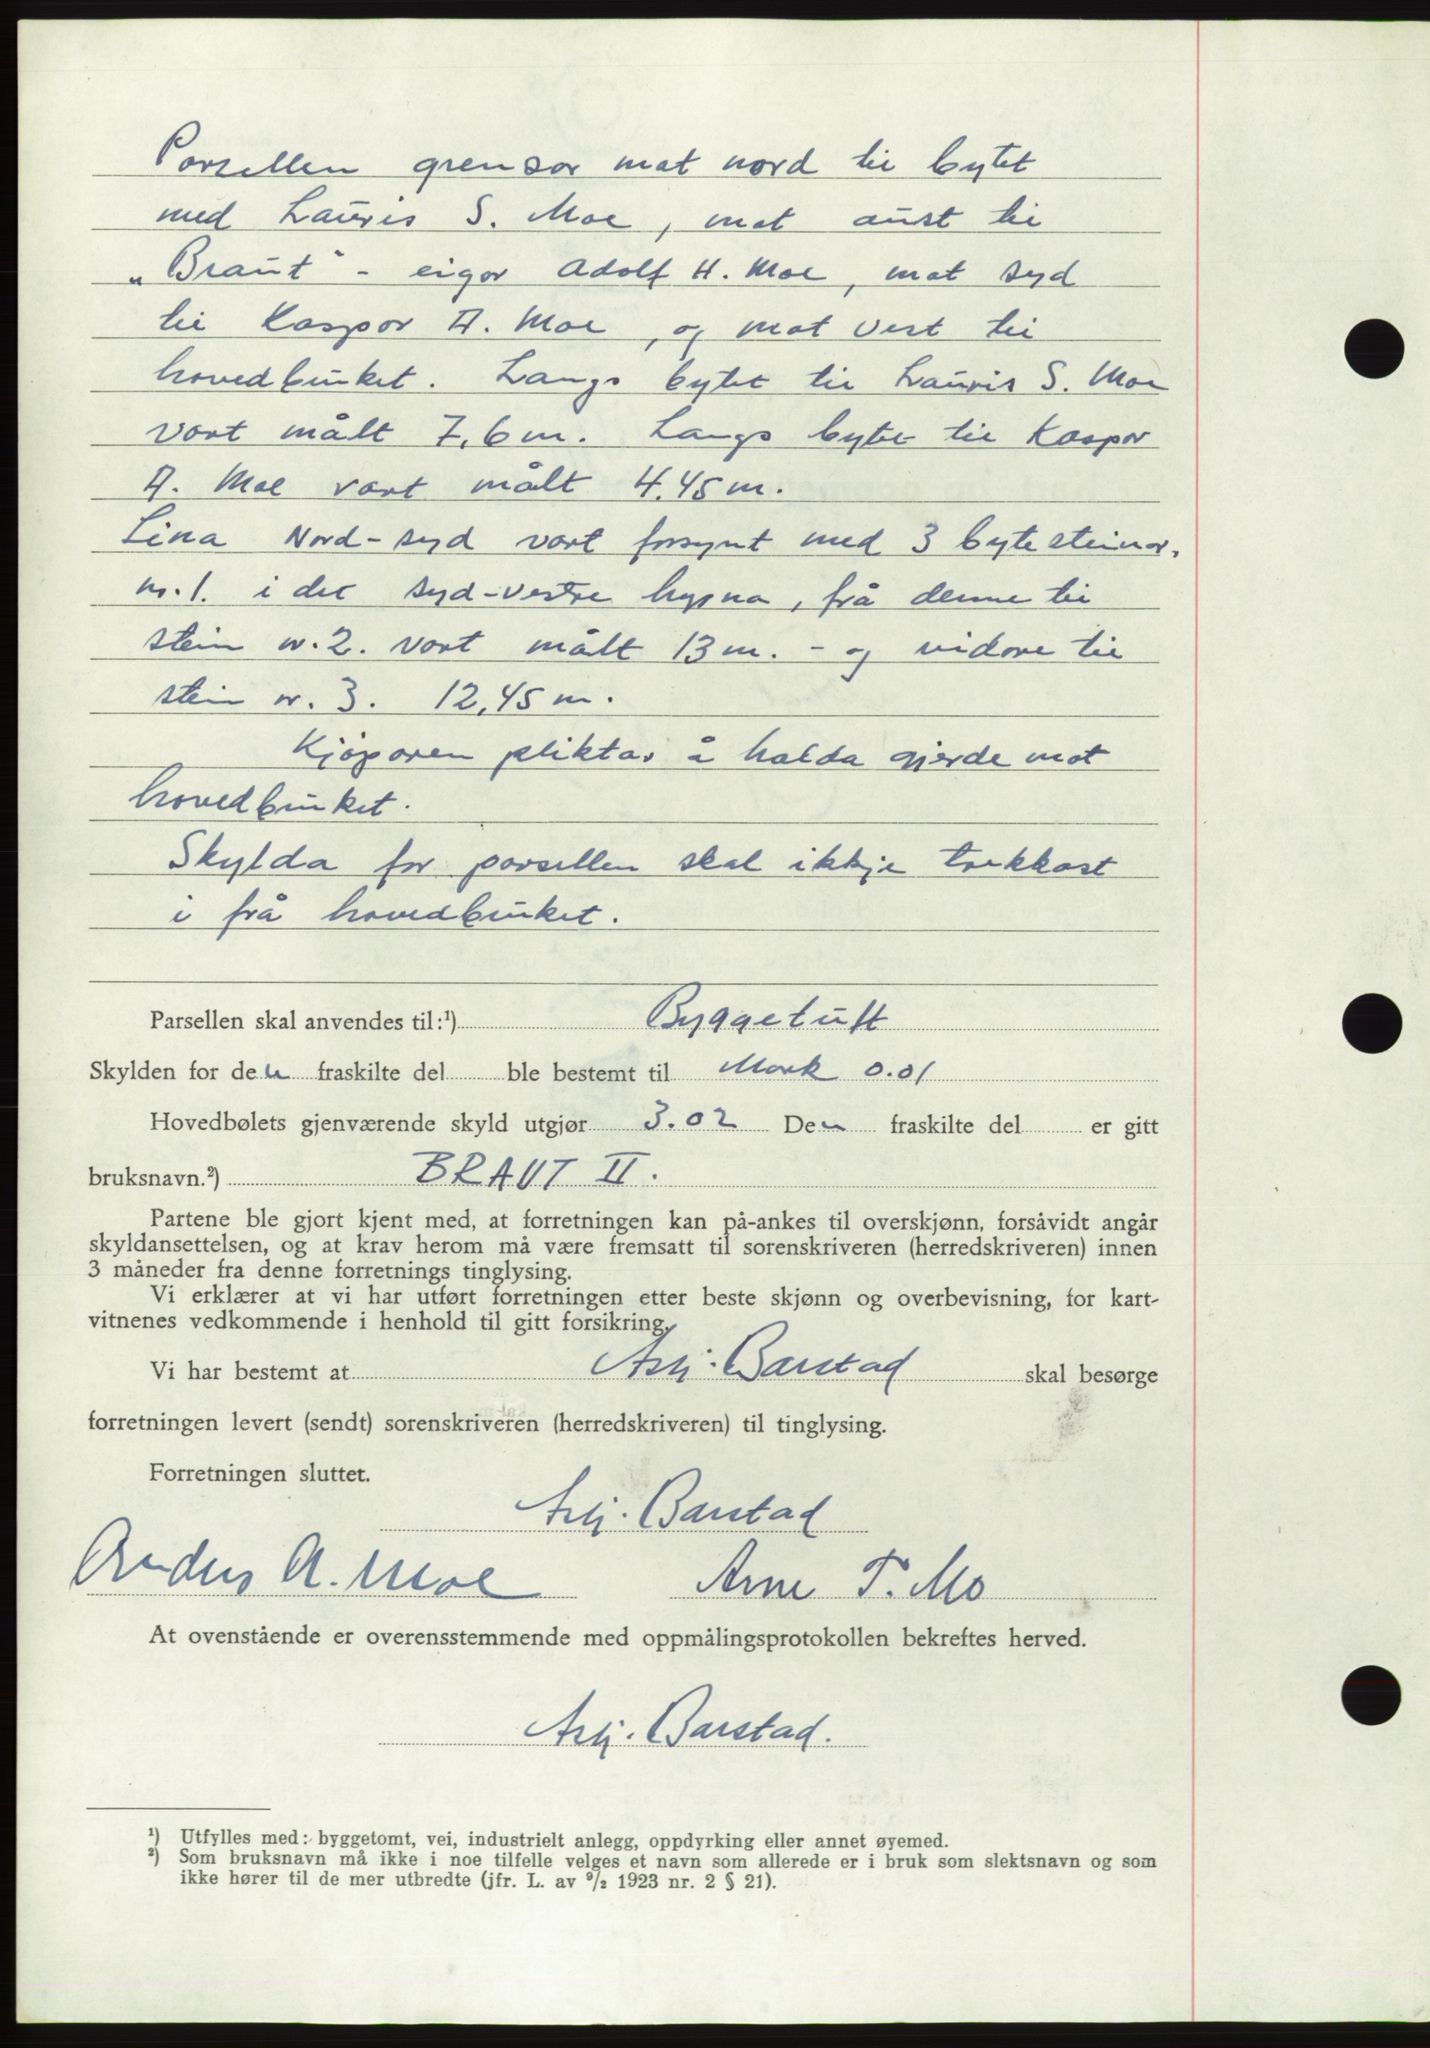 Parsellen grensar mot nord til bytet
med Lauris S. Moe, mot aust til
„Braut" - eigar Adolf H. Moe, mot syd
til Kaspar A. Moe, og mot vest til
hovedbruket. Langs bytet til Lauris S. Moe
vart målt 7,6 m. Langs bytet til Kaspar
A. Moe vart målt 4.45 m.
Lina Nord-syd vart forsynt med 3 bytesteinar.
nr. 1. i det syd-vestre hyrna, frå denne til
stein nr. 2. vart målt 13 m. - og vidare til
stein nr. 3. 12,45 m.
Kjøparen pliktar å halda gjerde mot
hovedbruket.
Skylda for parsellen skal ikkje trekkast
i frå hovedbruket.
Parsellen skal anvendes til:¹) Byggetuft
Skylden for den fraskilte del ble bestemt til Mark 0.01
Hovedbølets gjenværende skyld utgjør 3.02 Den fraskilte del er gitt
bruksnavn.²) BRAUT II.
Partene ble gjort kjent med, at forretningen kan på-ankes til overskjønn, forsåvidt angår
skyldansettelsen, og at krav herom må være fremsatt til sorenskriveren (herredskriveren) innen
3 måneder fra denne forretnings tinglysing.
Vi erklærer at vi har utført forretningen etter beste skjønn og overbevisning, for kart-
vitnenes vedkommende i henhold til gitt forsikring.
Vi har bestemt at Asbj. Barstad skal besørge
forretningen levert (sendt) sorenskriveren (herredskriveren) til tinglysing.
Forretningen sluttet.
Asbj. Barstad
Anders A. Moe Arne T. Mo
At ovenstående er overensstemmende med oppmålingsprotokollen bekreftes herved.
Asbj. Barstad.
¹) Utfylles med: byggetomt, vei, industrielt anlegg, oppdyrking eller annet øyemed.
²) Som bruksnavn må ikke i noe tilfelle velges et navn som allerede er i bruk som slektsnavn og som
ikke hører til de mer utbredte (jfr. L. av ⁹/₂ 1923 nr. 2 § 21).